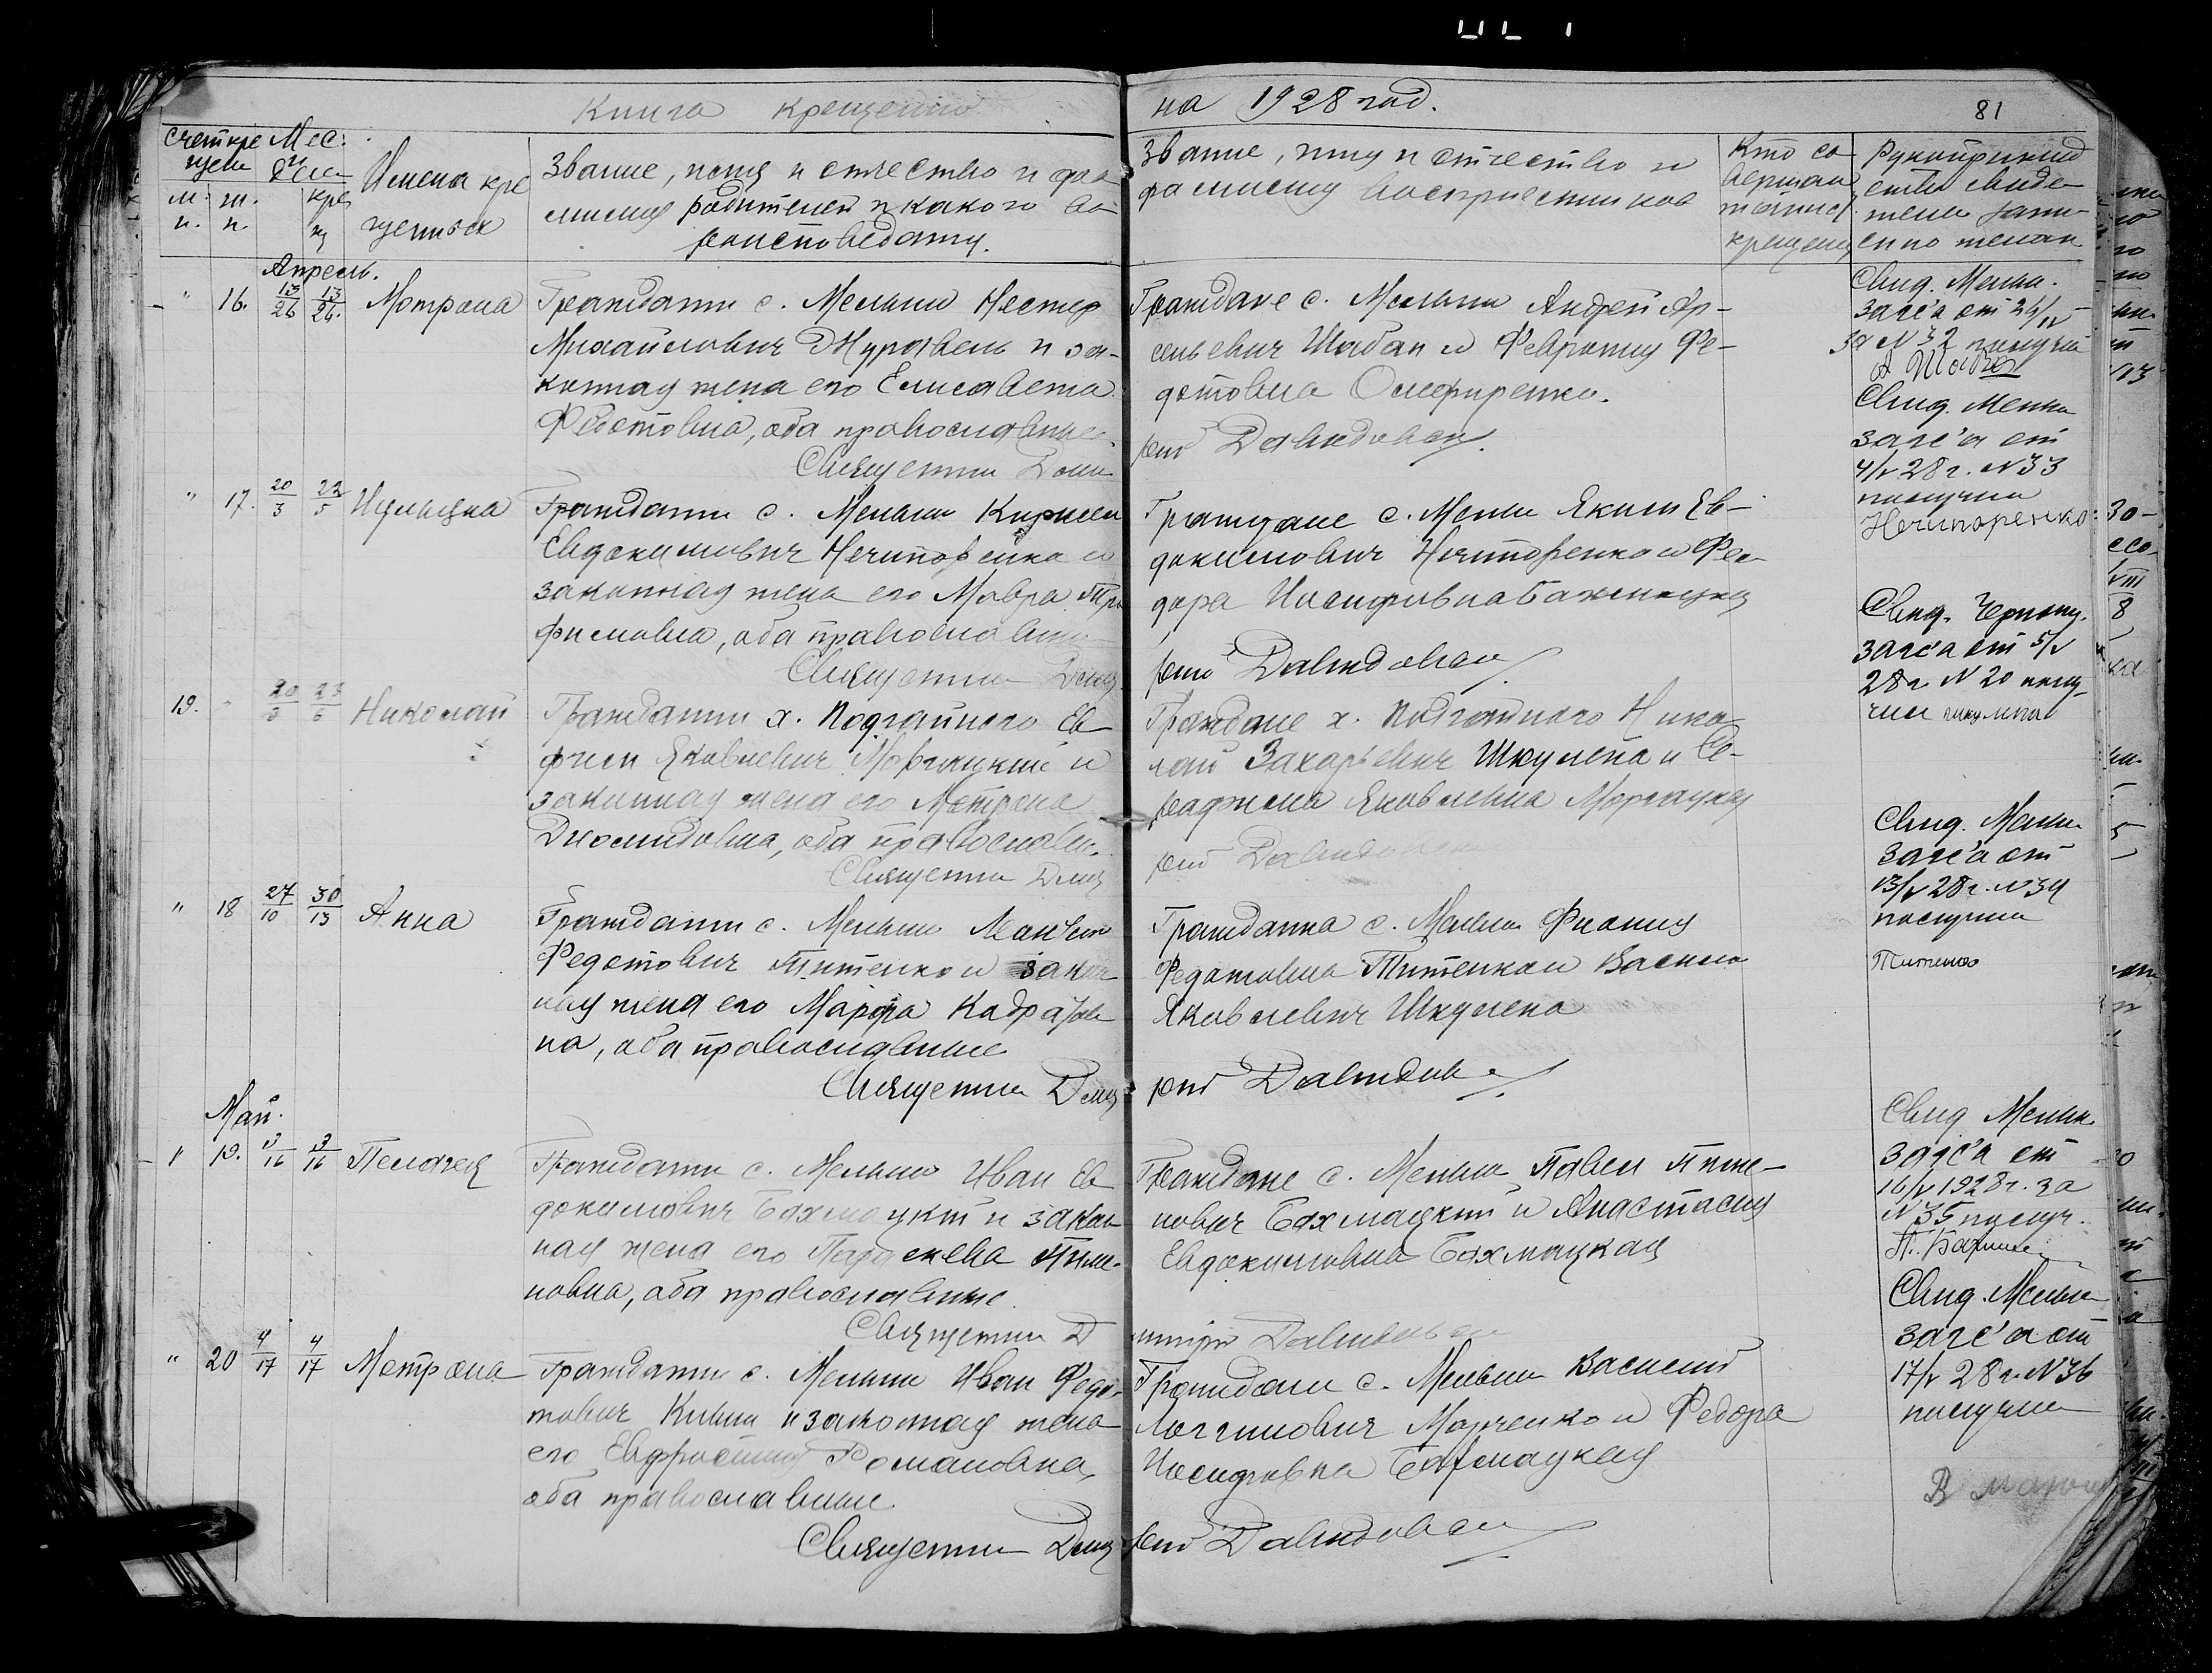 Книга крещений
на 1928 год.
81
Счет кре
щен
Мес.
и
м.
п.
ж.
п.
кре
щ
Имена кре
щеных
Звание, имя и отчество и фа-
милия родителей и какого ве-
роисповедания.
Звание, имя и отчество и
фамилия восприемников
Кто со
вершал
таинст.
крещения
Рукоприклад
ство свиде-
телей запи-
си по желан.
Апрель.
" 16. 13/26 13/26. Мотрона
Гражданин с. Мельни Нестер
Михайлович Журавель и за-
конная жена его Елисавета
Федотовна, оба православные.
Священник Дми
Граждане с. Мельни Андрей Ар-
сеньевич Шабан и Феврония Фе-
дотовна Олефиренко.
рий Давидовский
Свид. Мельн.
загс'а от 26/IV
за N 32 получил
А Шабан
" 17. 20/3 22/5
Гражданин с. Мельни Кирилл
Евдокимович Нечипоренко и
законная жена его Мавра Тро
фимовна, оба православные
Священник Дми
Граждане с. Мельни Яким Ев-
докимович Нечипоренко и Фео
дора Иосифовна Бахмацкая
рий Давидовский
Свид. Мельн
загс'а от
4/V 28 г. N 33
получил
Нечипоренко
19. " 20/3 23/6 Николай
Гражданин х. Подгайного Ев
фим Яковлевич Моргацкий и
законная жена его Мотрона
Диомидовна, оба православн.
Священник Дми
Граждане х. Подгайного Нико
лай Захарьевич Шкулепа и Се-
рафима Яковлевна Моргацкая
рий Давидовский
загс'а от 5/V
28 г. N 20 полу-
чил
" 18 27/10 30/13 Анна
Гражданин с. Мельни
Федотович Титенко и закон
ная жена его Марфа Кодратов
на, оба православные
Священник Дми
Гражданка с. Мельни
Федотовна Титенко и Василий
Яковлевич Шкулепа
рий Давидов
Свид. Мельн
загс'а от
13/V 28 г. N 34
получил
Титенко
Май.
" 19. 3/16 3/16 Пелагея
Гражданин с. Мельни Иван Ев
докимович Бахмацкий и закон
ная жена его Параскева Пиме-
новна, оба православные
Священник Д
Граждане с. Мельни Павел Пиме-
нович Бахмацкий и Анастасия
Евдокимовна Бахмацкая
митрий Давидовский
Свид. Мельн.
загс'а от
16/V 1928 г. за
N 35 получ.
" 20 4/17 4/17 Мотрона
Гражданин с. Мельни Иван Федо-
тович и законная жена
его Евфросиния Романовна,
оба православные
Священник Дми
Граждане с. Мельни Василий
Логгинович Марченко и Федора
Иосифовна Бахмацкая
рий Давидовский
Свид. Мельн
загс'а от
17/V 28 г. N 36
получил